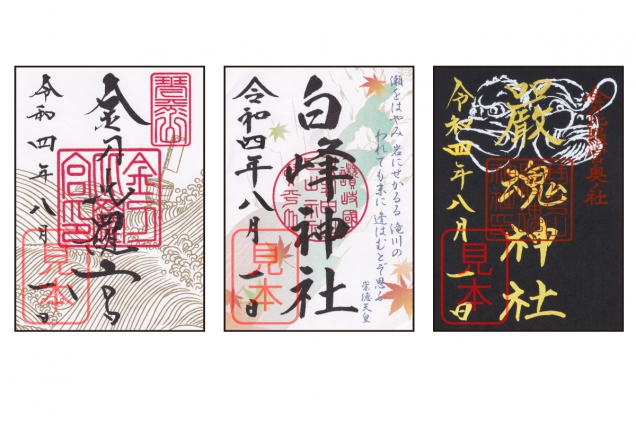 金刀比羅宮
令和四年八月一日
見本
白峰神社
令和四年八月一日
瀬をはやみ 岩にせかるる 滝川の
われても末に 逢はむとぞ思ふ
崇徳天皇
讃岐國
見本
厳魂神社
令和四年八月一日
奥社
見本